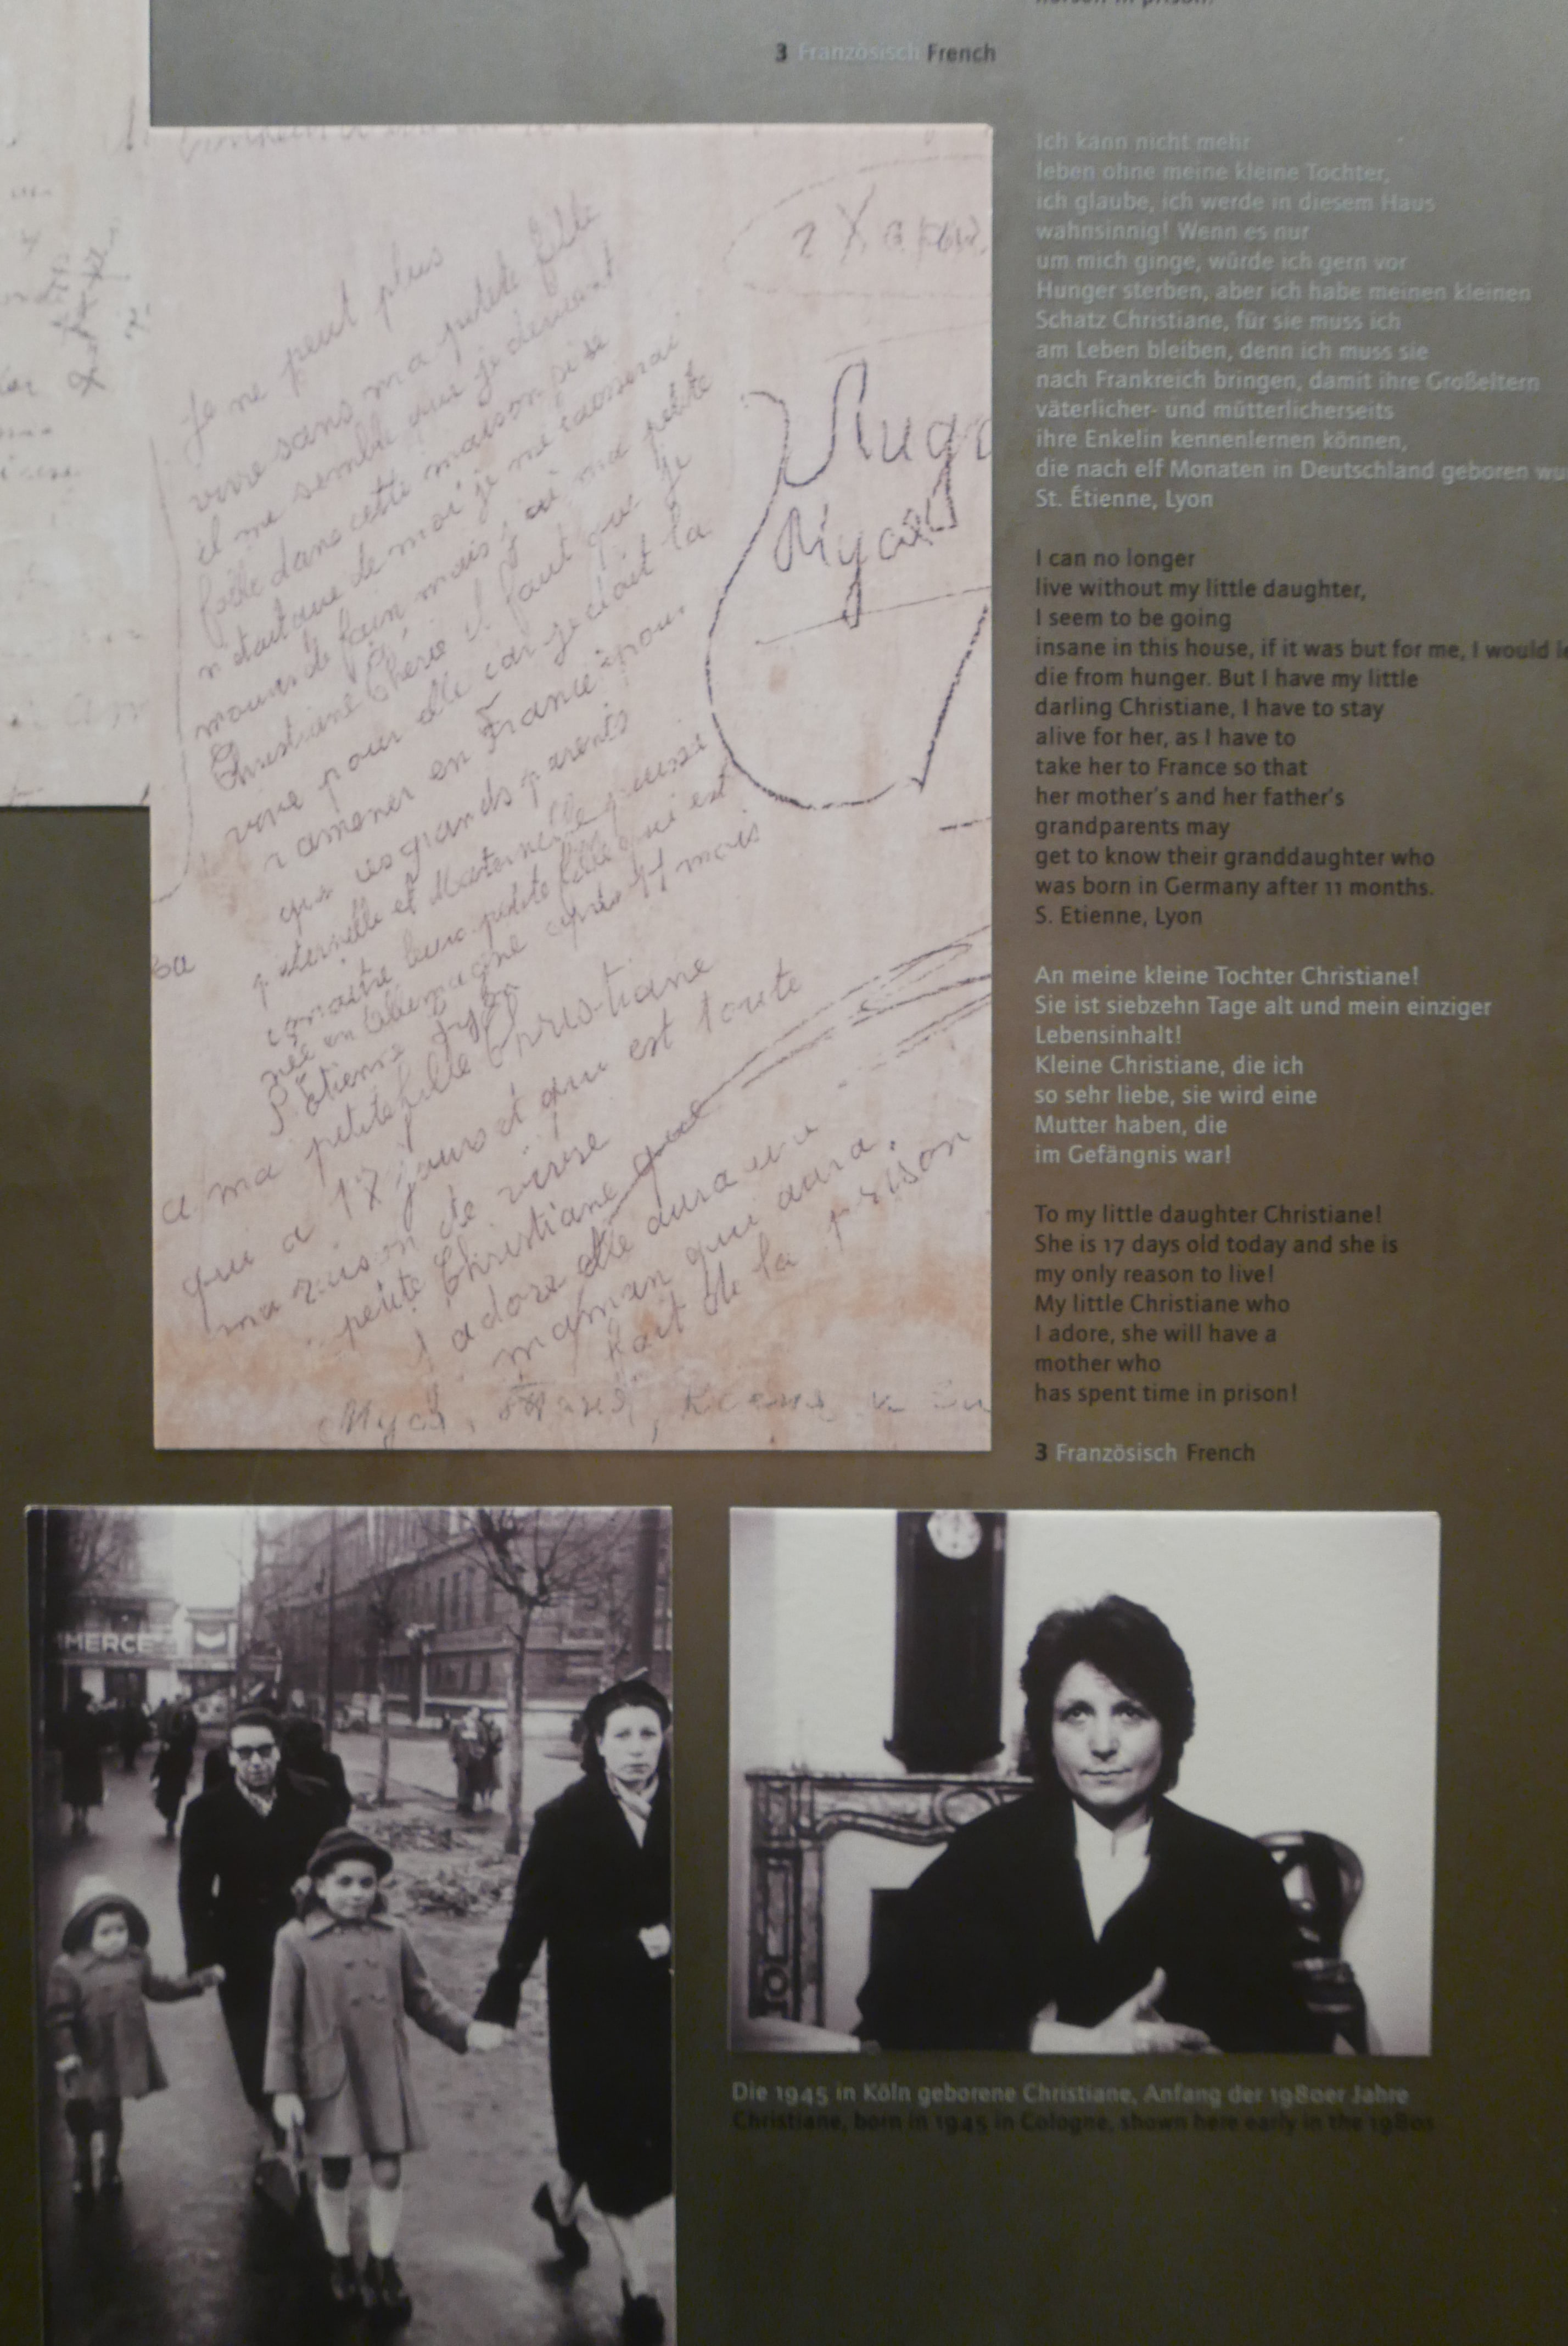 3 Französisch French
Je ne peut plus
vivre sans ma petite fille
il me semble que je devient
folle dans cette maison si se
n'était que de moi je me
mourir de faim mais j'ai ma petite
Christiane Chérie il faut que je
vive pour elle car je doit la
ramener en France pour
que ces grands parents
paternelle et Maternelle puisse
connaitre leur petite fille qui est
née en Allemagne après 11 mois
S. Étienne
a ma petite fille Christiane
qui a 17 jours et qui est toute
ma raison de vivre
petite Christiane que
j'adore elle aura une
maman qui aura
fait de la prison
Ich kann nicht mehr
leben ohne meine kleine Tochter,
ich glaube, ich werde in diesem Haus
wahnsinnig! Wenn es nur
um mich ginge, würde ich gern vor
Hunger sterben, aber ich habe meinen kleinen
Schatz Christiane, für sie muss ich
am Leben bleiben, denn ich muss sie
nach Frankreich bringen, damit ihre Großeltern
väterlicher- und mütterlicherseits
ihre Enkelin kennenlernen können,
die nach elf Monaten in Deutschland geboren wu
St. Étienne, Lyon
I can no longer
live without my little daughter,
I seem to be going
insane in this house, if it was but for me, I would le
die from hunger. But I have my little
darling Christiane, I have to stay
alive for her, as I have to
take her to France so that
her mother's and her father's
grandparents may
get to know their granddaughter who
was born in Germany after 11 months.
S. Etienne, Lyon
An meine kleine Tochter Christiane!
Sie ist siebzehn Tage alt und mein einziger
Lebensinhalt!
Kleine Christiane, die ich
so sehr liebe, sie wird eine
Mutter haben, die
im Gefängnis war!
To my little daughter Christiane!
She is 17 days old today and she is
my only reason to live!
My little Christiane who
I adore, she will have a
mother who
has spent time in prison!
3 Französisch French
MERCE
Die 1945 in Köln geborene Christiane, Anfang der 1980er Jahre
Christiane, born in 1945 in Cologne, shown here early in the 1980s